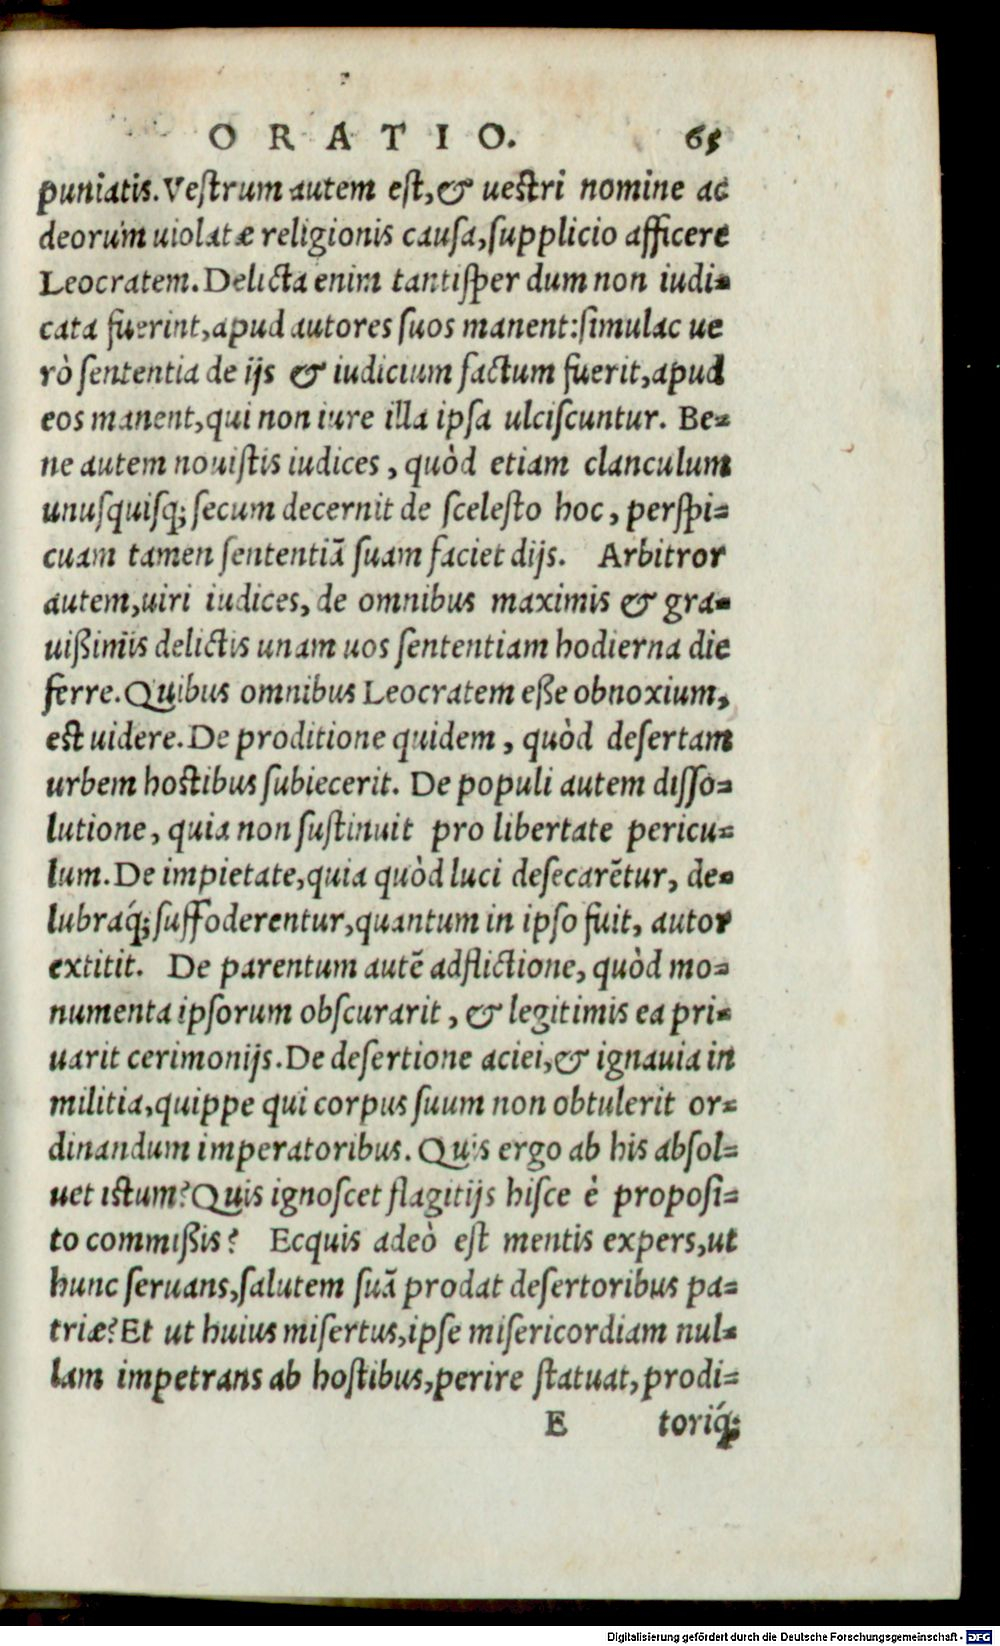 ORATIO. 65
puniatis. Vestrum autem est, & uestri nomine ac
deorum uiolatæ religionis causa, supplicio afficere
Leocratem. Delicta enim tantisper dum non iudi=
cata fuerint, apud autores suos manent: simulac ue
rò sententia de ijs & iudicium factum fuerit, apud
eos manent, qui non iure illa ipsa ulciscuntur. Be=
ne autem nouistis iudices, quòd etiam clanculum
unusquisq; secum decernit de scelesto hoc, perspi=
cuam tamen sententiā suam faciet dijs. Arbitror
autem, uiri iudices, de omnibus maximis & gra=
uißimis delictis unam uos sententiam hodierna die
ferre. Quibus omnibus Leocratem eße obnoxium,
est uidere. De proditione quidem, quòd desertam
urbem hostibus subiecerit. De populi autem disso=
lutione, quia non sustinuit pro libertate pericu=
lum. De impietate, quia quòd luci desecarētur, de=
lubraq́; suffoderentur, quantum in ipso fuit, autor
extitit. De parentum autē adflictione, quòd mo=
numenta ipsorum obscurarit, & legitimis ea pri=
uarit cerimonijs. De desertione aciei, & ignauia in
militia, quippe qui corpus suum non obtulerit or=
dinandum imperatoribus. Quis ergo ab his absol=
uet istum? Quis ignoscet flagitijs hisce è proposi=
to commißis? Ecquis adeò est mentis expers, ut
hunc seruans, salutem suā prodat desertoribus pa=
triæ? Et ut huius misertus, ipse misericordiam nul=
lam impetrans ab hostibus, perire statuat, prodi=
E toriq́;
Digitalisierung gefördert durch die Deutsche Forschungsgemeinschaft - DFG